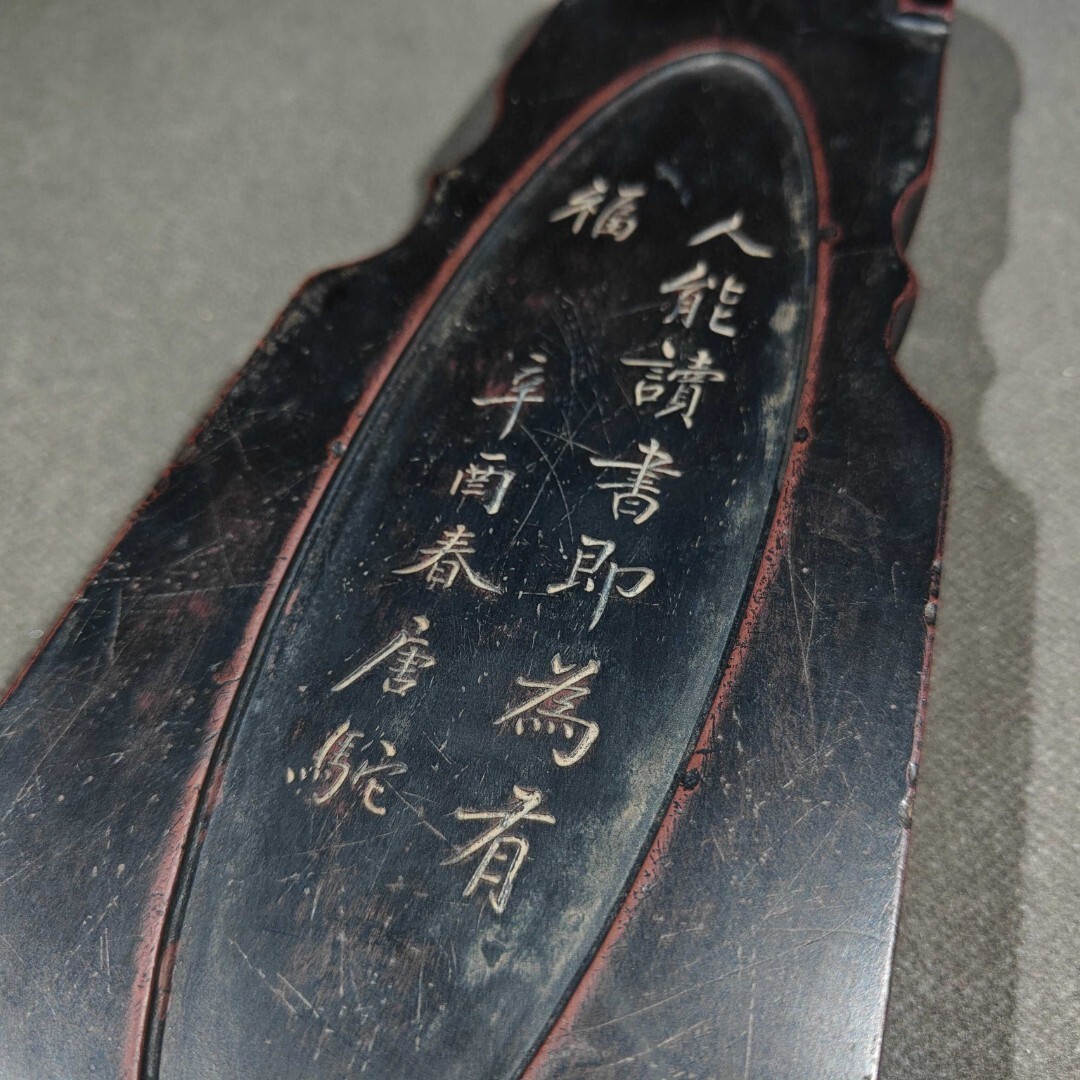 人能讀書即為有
福
辛酉春唐駝